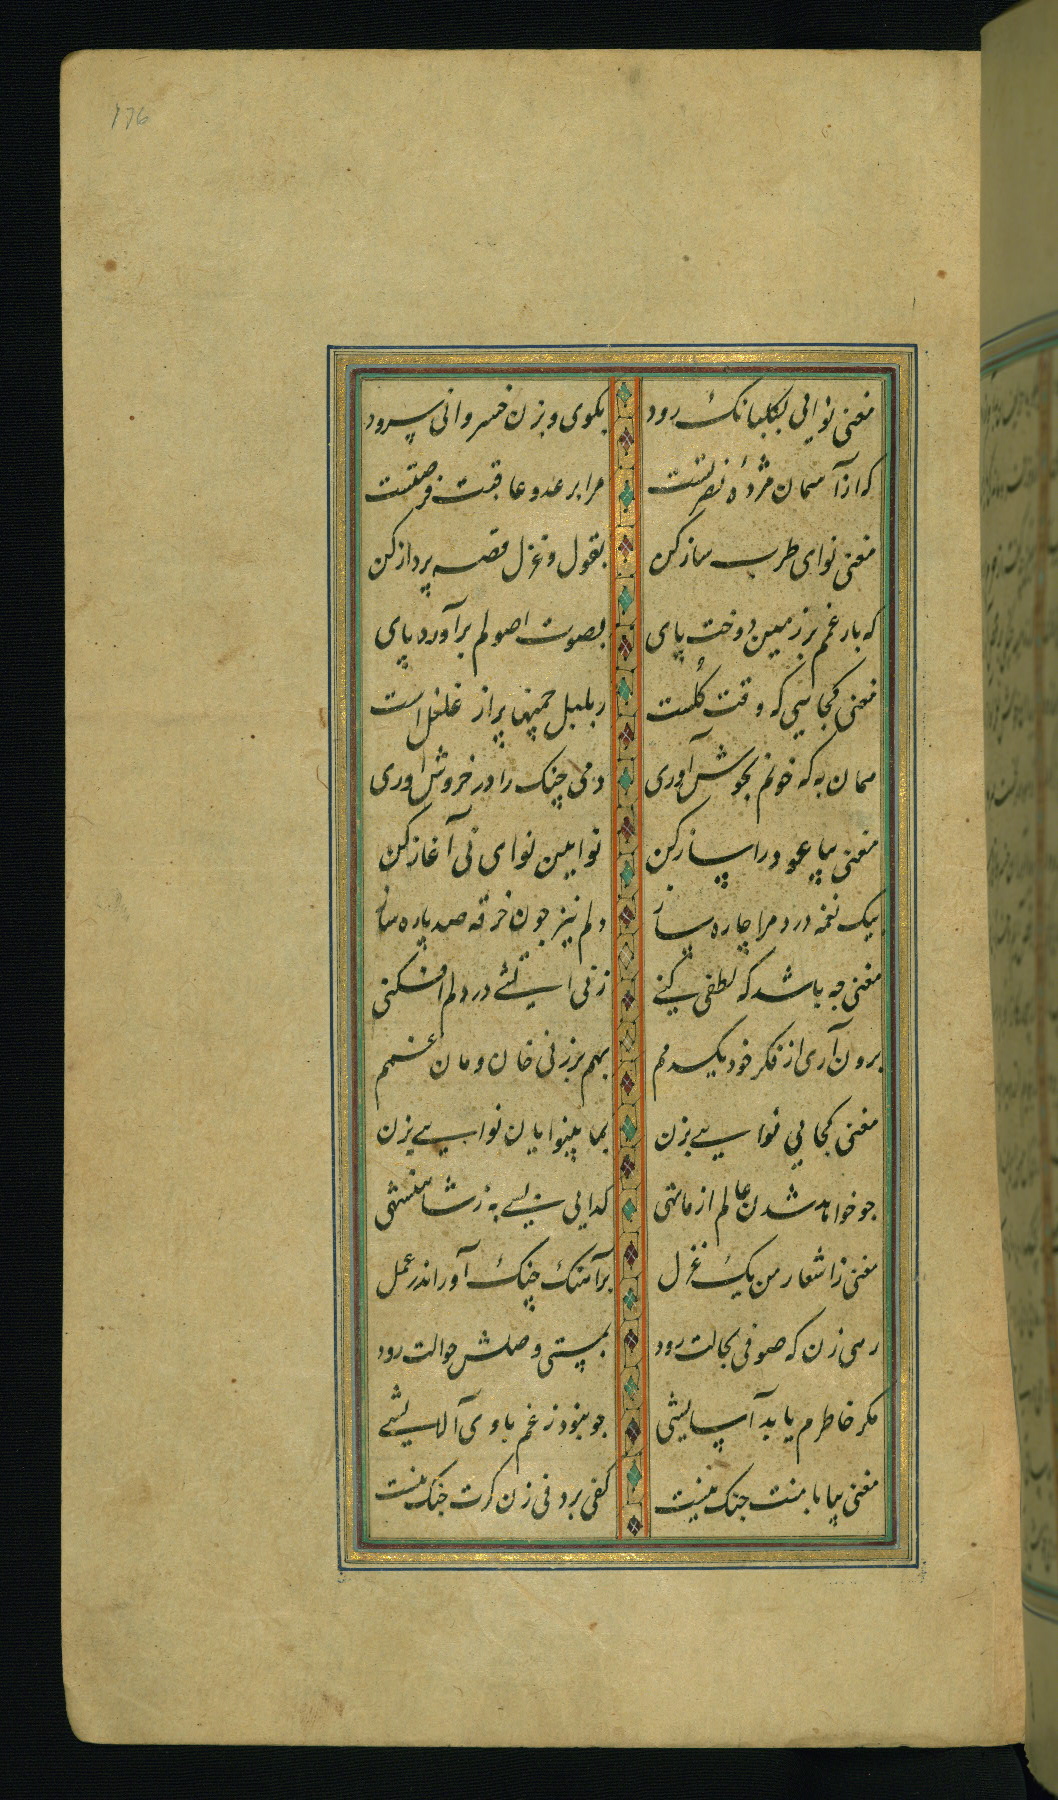 176
مغنی نوایی بگلبانک رود بکوی و بزن خسروانی سرود
که از آسمان مژدهٔ نصرتست مرا بر عدو عاقبت فرصتست
مغنی نوای طرب ساز کن بقول و غزل قصه پرداز کن
که بار غم بر زمین دوخت پای بصوت اصولم برآورد پای
مغنی کجایی که وقت کلست ز بلبل چمنها پر از غلغل است
همان به که خونم بجوش آوری دمی چنک را در خروش اوری
مغنی بیا عود را ساز کن نوایین نوای نی آغاز کن
بیک نغمه درد مرا چاره ساز دلم نیز جون خرقه صد پاره ساز
مغنی جه باشد که لطفی کنی زنی اتشی در دلم افکنی
برون آری از فکر خود یکدمم بهم برزنی خان و مان غمم
مغنی کجایی نوایی بزن بما بینوایان نوایی بزن
جو خواهد شدن عالم از ما تهی کدایی بسی به ز شاهنشهی
مغنی ز اشعار من یک غزل برآهنک چنک آور اندر عمل
رهی زن که صوفی بحالت رود بمستی وصلش حوالت رود
مکر خاطرم یابد آسایشی جو نبود ز غم با وی آلایشی
مغنی بیا با منت جنک نیست کفی بر دفی زن کرت جنک نیست